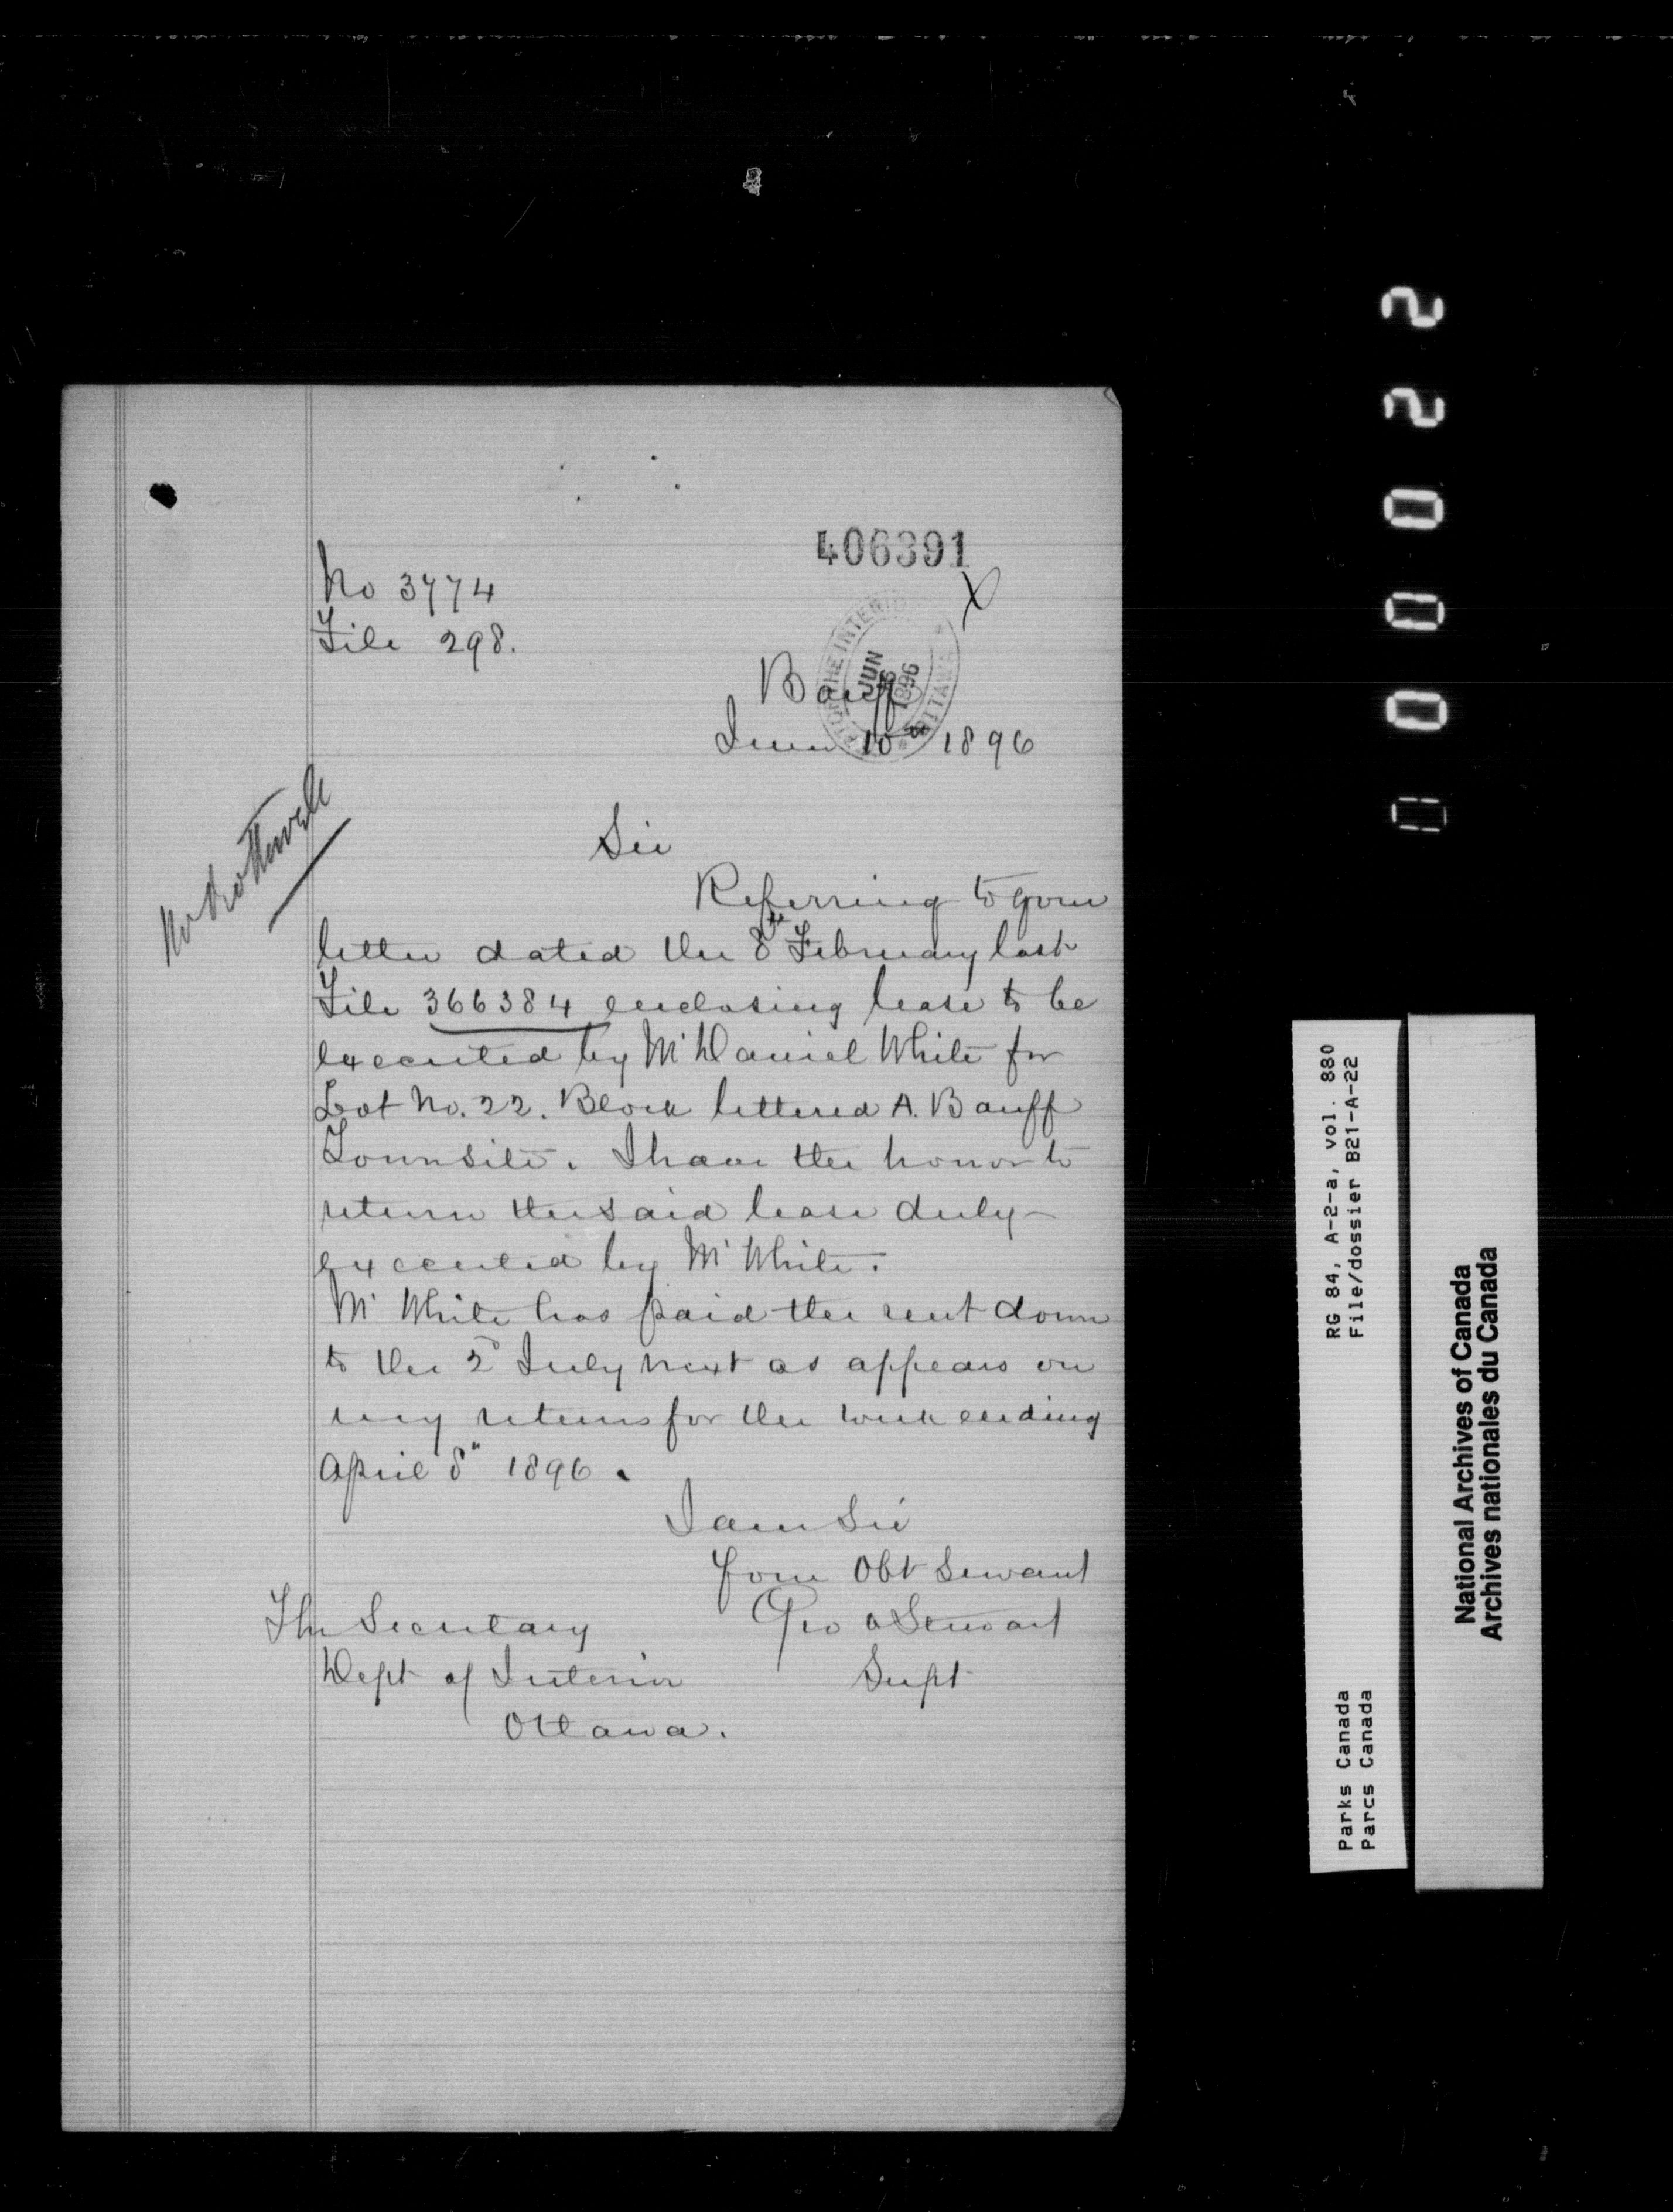 406391
No 3774
File 298.
X
THE INTERIOR
JUN
1896
OTTAWA
Banff
June 10 1896
Mr Rothwell
Sir
Referring to your
letter dated the 8th February last
File 366384 enclosing lease to be
executed by Mr Daniel White for
Lot No. 22. Block lettered A. Banff
Townsite. I have the honor to
return the said lease duly
executed by Mr White.
Mr White has paid the rent down
to the 2d July next as appears on
my returns for the week ending
April 8" 1896.
I am Sir
Your Obt Servant
Geo A Stewart
Supt
The Secretary
Dept of Interior
Ottawa.
000022
RG 84, A-2-a, vol. 880
File/dossier B21-A-22
Parks Canada
Parcs Canada
National Archives of Canada
Archives nationales du Canada